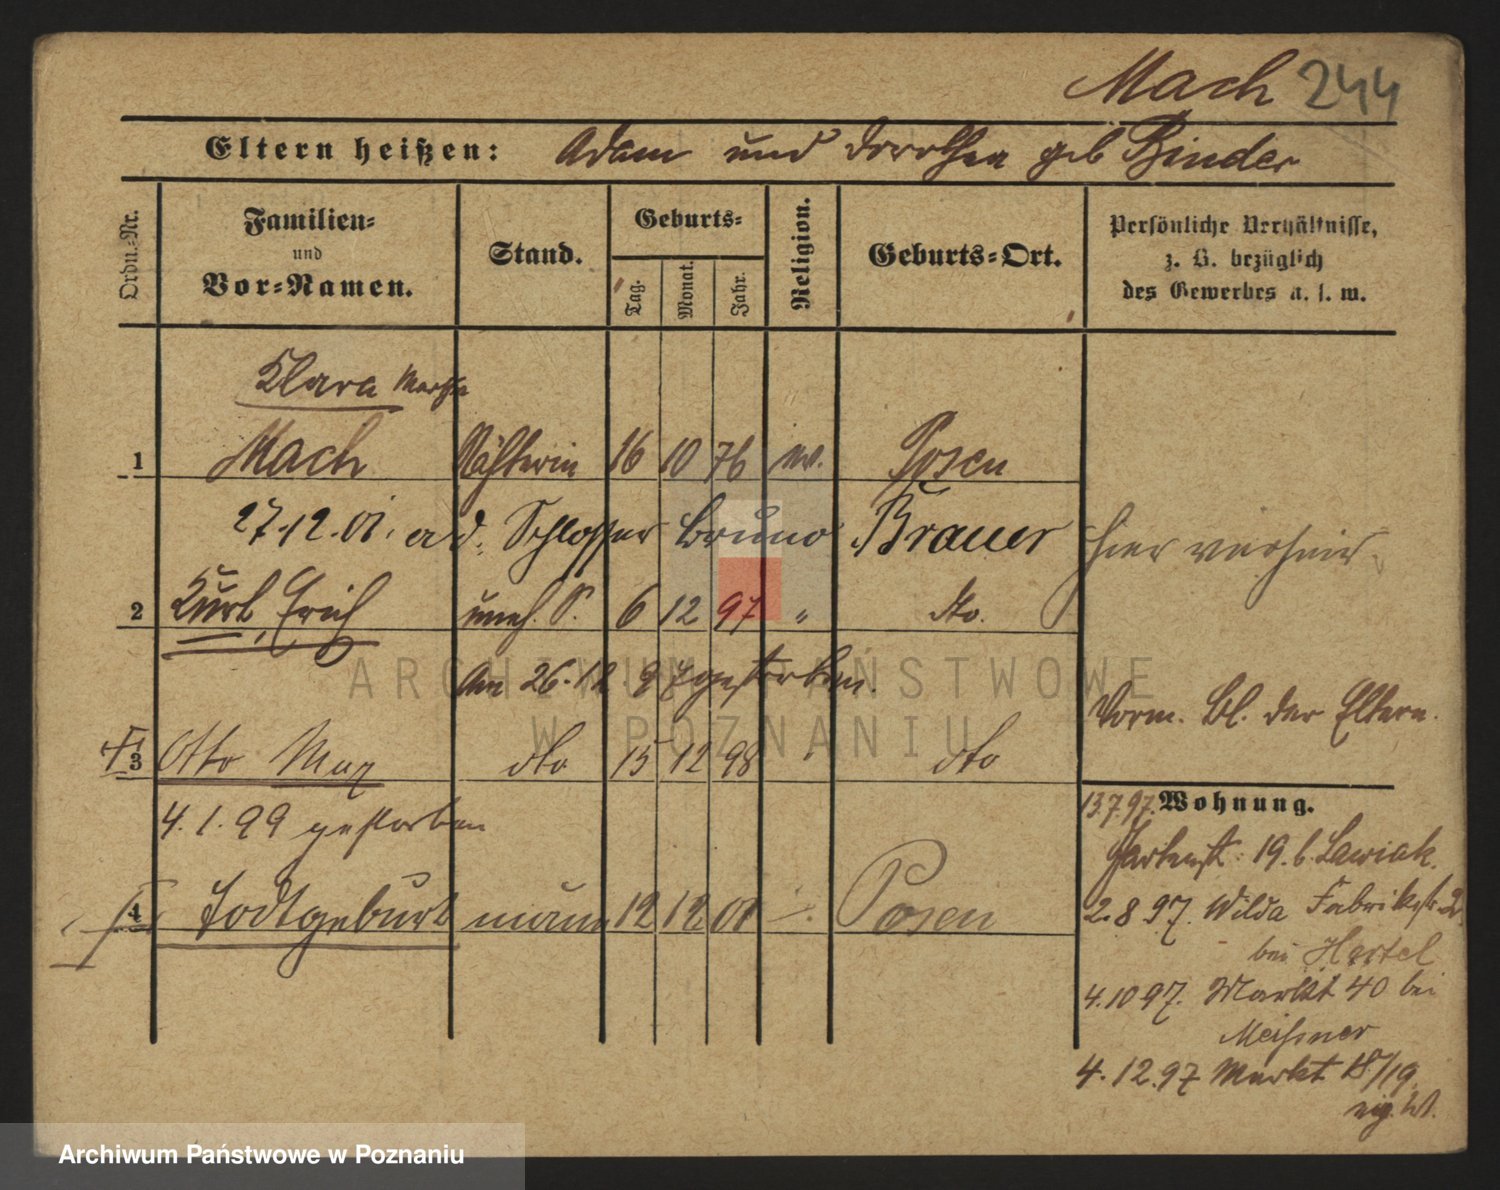 Mach 244
Eltern heißen: Adam und Dorothea geb Binder
Ordn.-Nr.
Familien-
und
Vor-Namen.
Stand.
Geburts-
Tag.
Monat.
Jahr.
Religion.
Geburts-Ort.
Persönliche Verhältnisse,
z. B. bezüglich
des Gewerbes u. s. w.
Klara Martha
1 Mach Nähterin 16 10 76 ev. Posen
27.12.01. a d. Schlosser Bruno Brauer hier verheir.
2 Kurt, Erich uneh. S. 6 12 97 " dto.
Am 26.12.97 gestorben.
Vorm. Bl. der Eltern.
3 Otto Max dto 15 12 98 dto
4.1.99 gestorben
4 Todtgeburt männ 12 12 01 ./. Posen
13.7.97. Wohnung.
Gartenstr. 19. b. Lawiak.
2.8 97. Wilda Fabrikstr. 2
bei Hertel
4.10 97. Markt 40 bei
Meißner
4.12.97 Markt 18/19
eig. W.
ARCHIWUM PAŃSTWOWE
W POZNANIU
Archiwum Państwowe w Poznaniu